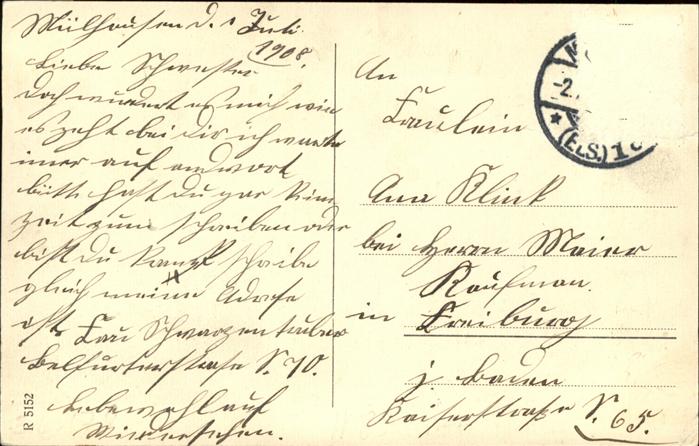 Mülhausen d. 1 Juli
1908.
Liebe Schwester
Doch wundert es mich wie
es geht bei Dir ich warte
imer auf andwort
bitte hast Du gar kein
zeit zum schreiben oder
bist Du krank schreibe
gleich meine Adrese
ist Frau Schwarzentruber
Belfurterstrase S. 70.
Lebewohl auf
Wiedersehen.
An
Fraulein
Ana Klink
bei Herrn Maier
Kaufman.
in Freiburg
j Baden
Kaiserstraße S. 65.
-2.
* (ELS.) 1
R 5152